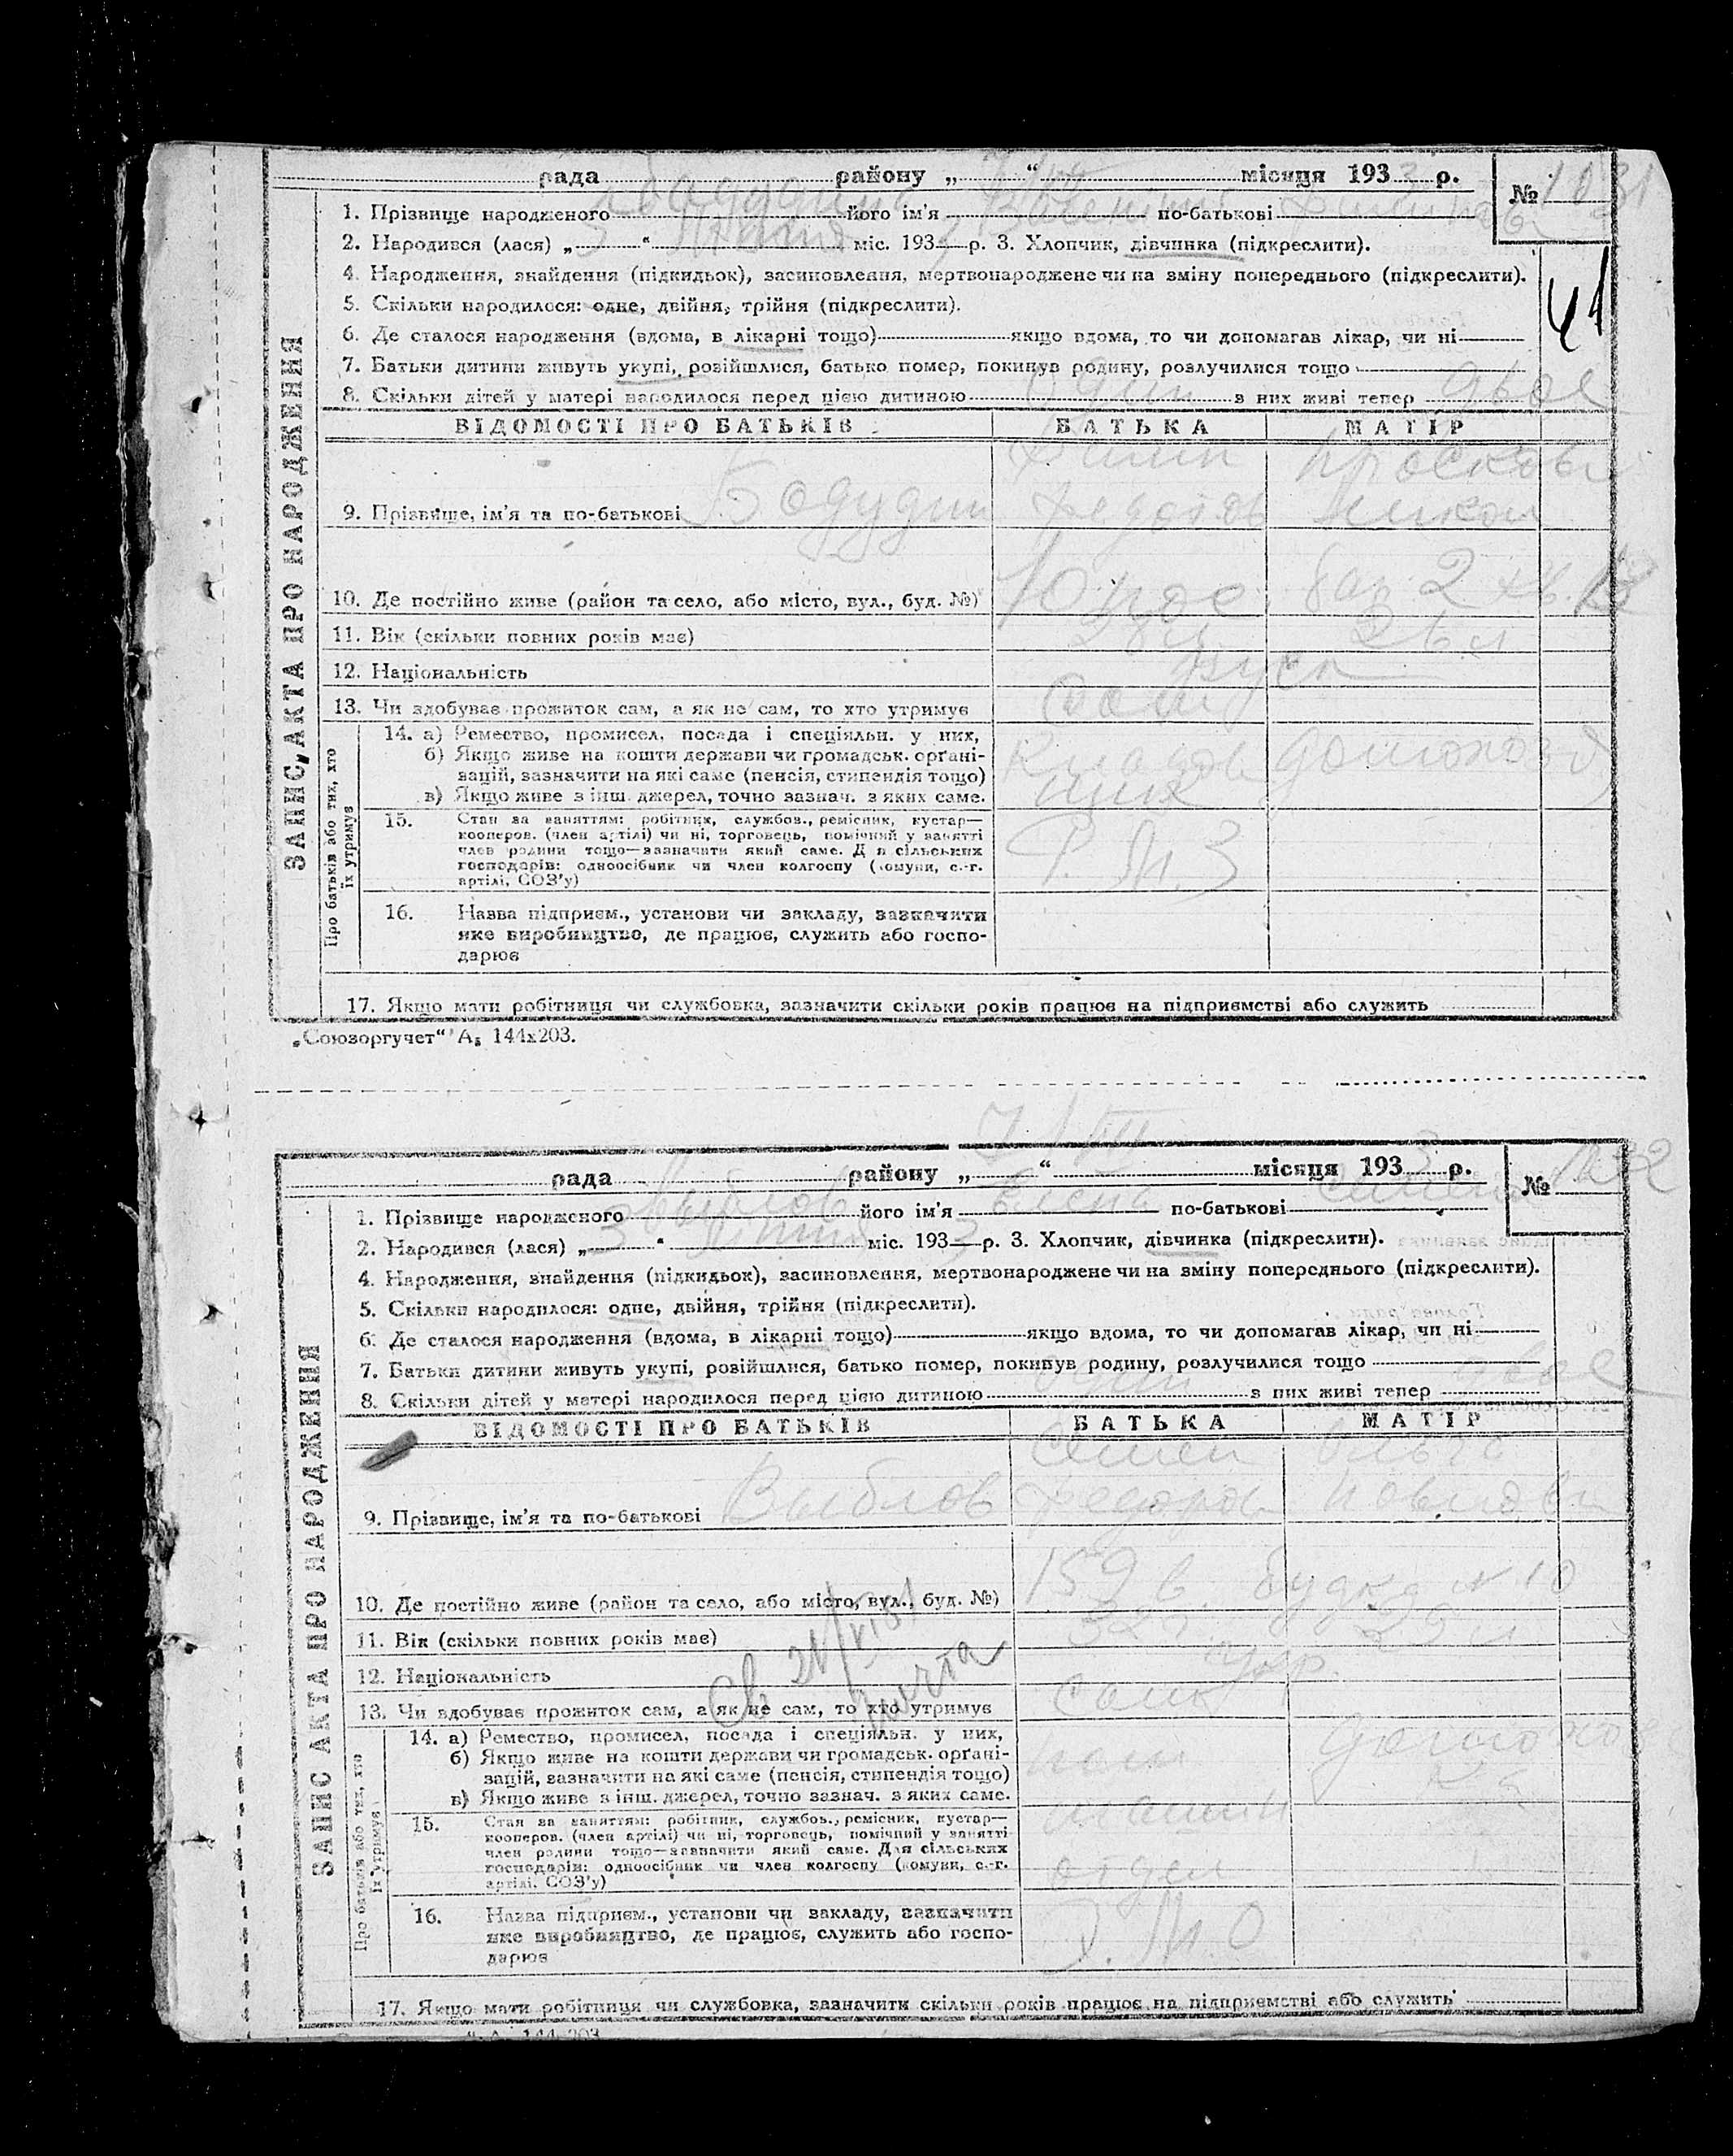 рада району „ “ місяця 1933 р. № 1031
1. Прізвище народженого його ім'я по-батькові
2. Народився (лася) „5“ міс. 193 р. 3. Хлопчик, дівчинка (підкреслити).
4. Народження, знайдення (підкидьок), засиновлення, мертвонароджене чи на зміну попереднього (підкреслити).
41
5. Скільки народилося: одне, двійня, трійня (підкреслити).
6. Де сталося народження (вдома, в лікарні тощо) якщо вдома, то чи допомагав лікар, чи ні
7. Батьки дитини живуть укупі, розійшлися, батько помер, покинув родину, розлучилися тощо
8. Скільки дітей у матері народилося перед цією дитиною один з них живі тепер двое
ЗАПИС АКТА ПРО НАРОДЖЕННЯ
ВІДОМОСТІ ПРО БАТЬКІВ БАТЬКА МАТІР
Филип
9. Прізвище, ім'я та по-батькові
10. Де постійно живе (район та село, або місто, вул., буд. №) бар 2 кв.
11. Вік (скільки повних років має) 26 л
12. Національність руск
13. Чи здобуває прожиток сам, а як не сам, то хто утримує сам
Про батьків або тих, хто їх утримує
14. а) Ремество, промисел, посада і спеціяльн. у них,
б) Якщо живе на кошти держави чи громадськ. орґані-
зацій, зазначити на які саме (пенсія, стипендія тощо) кладов домохоз
в) Якщо живе з інш. джерел, точно зазнач. з яких саме. щик
15. Стан за заняттям: робітник, службов., ремісник, кустар—
кооперов. (член артілі) чи ні, торговець, помічний у занятті
член родини тощо—зазначити який саме. Для сільських
господарів: одноосібник чи член колгоспу (комуни, с.-г.
артілі, СОЗ'у)
16. Назва підприєм., установи чи закладу, зазначити
яке виробництво, де працює, служить або госпо-
дарює
17. Якщо мати робітниця чи службовка, зазначити скільки років працює на підприємстві або служить
„Союзоргучет“ А₅ 144х203.
7/VIII
рада району „ “ місяця 1933 р. № 1032
1. Прізвище народженого Выблов його ім'я Елена по-батькові
2. Народився (лася) „3“ міс. 1933 р. 3. Хлопчик, дівчинка (підкреслити).
4. Народження, знайдення (підкидьок), засиновлення, мертвонароджене чи на зміну попереднього (підкреслити).
5. Скільки народилося: одне, двійня, трійня (підкреслити).
6. Де сталося народження (вдома, в лікарні тощо) якщо вдома, то чи допомагав лікар, чи ні
7. Батьки дитини живуть укупі, розійшлися, батько помер, покинув родину, розлучилися тощо
8. Скільки дітей у матері народилося перед цією дитиною один з них живі тепер двое
ЗАПИС АКТА ПРО НАРОДЖЕННЯ
ВІДОМОСТІ ПРО БАТЬКІВ БАТЬКА МАТІР
Семен Ольга
9. Прізвище, ім'я та по-батькові Выблов Федоров
10. Де постійно живе (район та село, або місто, вул., буд. №) 159 в. будка № 10
11. Вік (скільки повних років має) 29 л
12. Національність укр.
13. Чи здобуває прожиток сам, а як не сам, то хто утримує сам
Про батьків або тих, хто їх утримує
14. а) Ремество, промисел, посада і спеціяльн. у них,
б) Якщо живе на кошти держави чи громадськ. орґані-
зацій, зазначити на які саме (пенсія, стипендія тощо) пом домохоз
в) Якщо живе з інш. джерел, точно зазнач. з яких саме. машин
15. Стан за заняттям: робітник, службов., ремісник, кустар—
кооперов. (член артілі) чи ні, торговець, помічний у занятті
член родини тощо—зазначити який саме. Для сільських
господарів: одноосібник чи член колгоспу (комуни, с.-г.
артілі, СОЗ'у) отдел
16. Назва підприєм., установи чи закладу, зазначити
яке виробництво, де працює, служить або госпо-
дарює
17. Якщо мати робітниця чи службовка, зазначити скільки років працює на підприємстві або служить